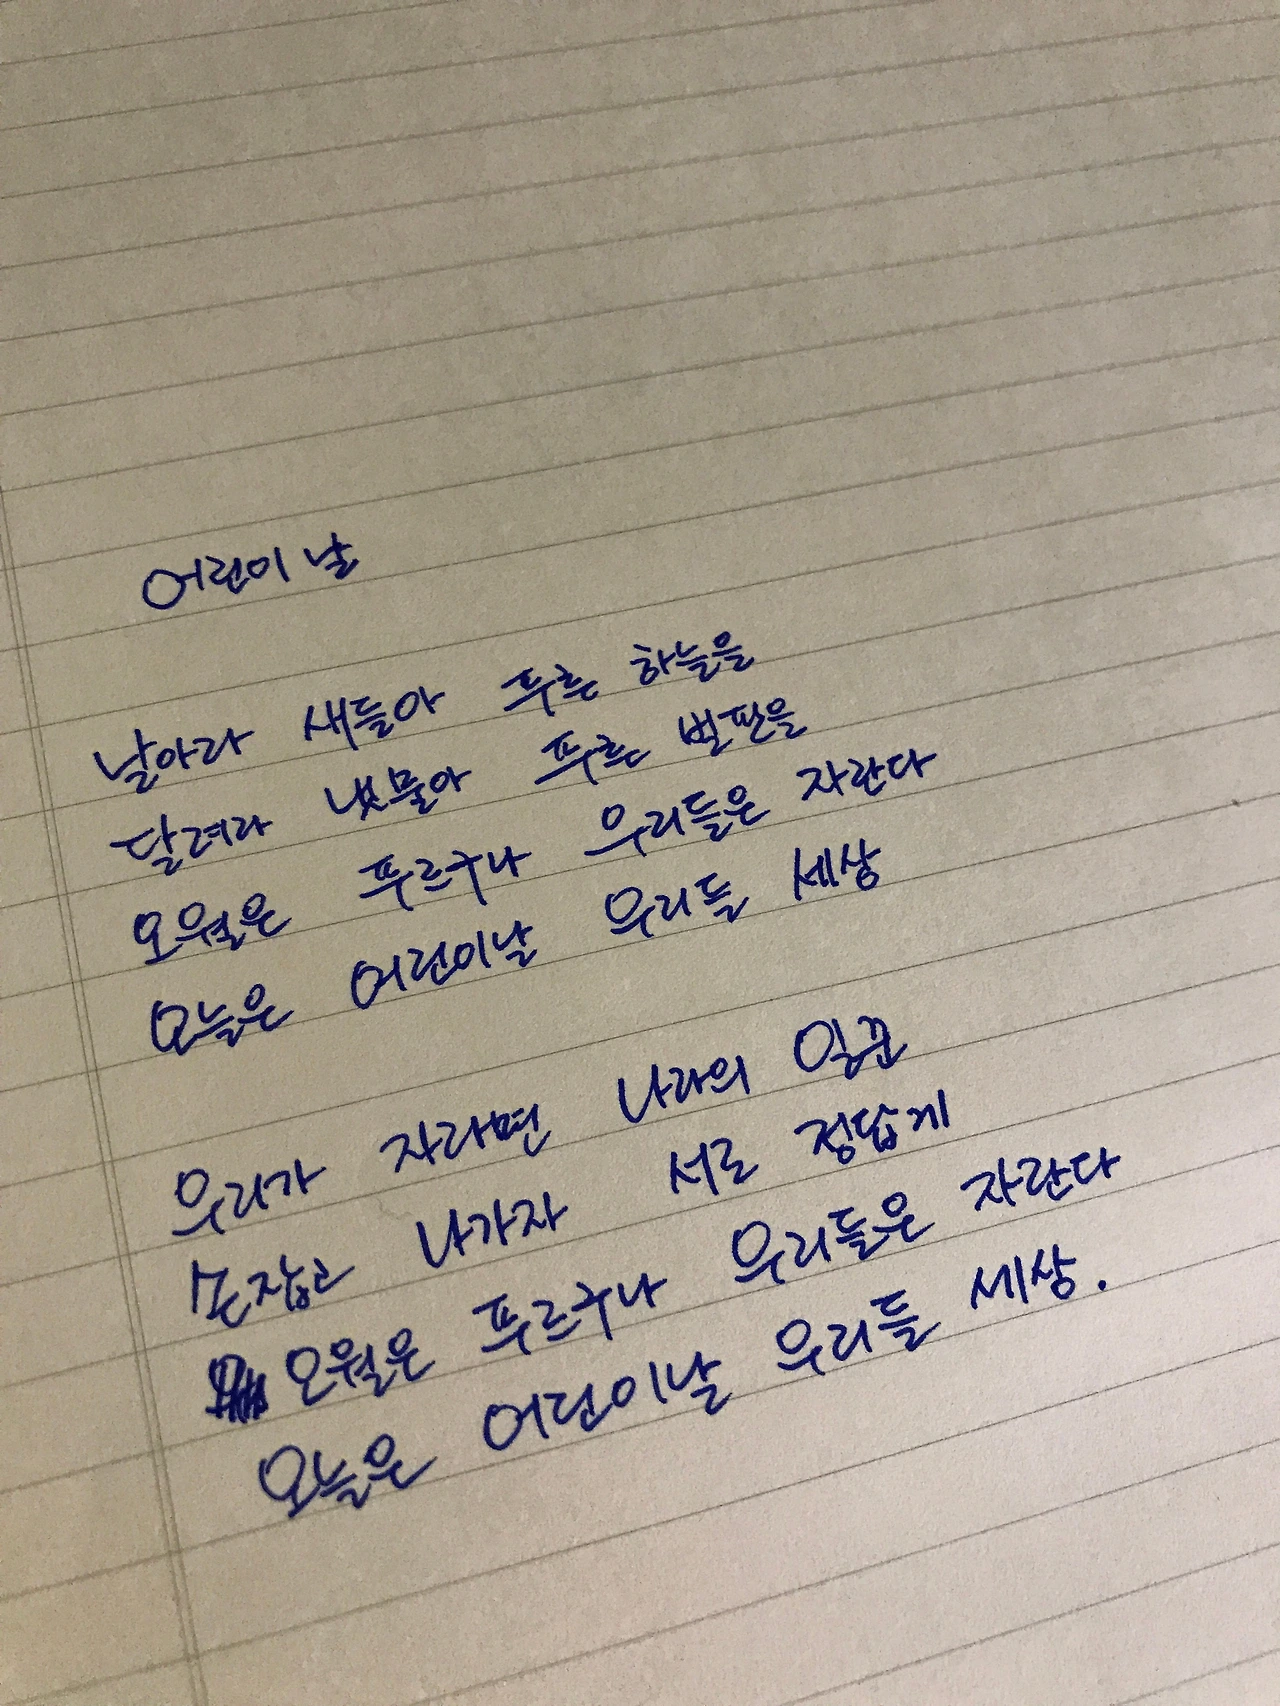 어린이 날
날아라 새들아 푸른 하늘을
달려라 냇물아 푸른 벌판을
오월은 푸르구나 우리들은 자란다
오늘은 어린이날 우리들 세상
우리가 자라면 나라의 일꾼
손잡고 나가자 서로 정답게
오월은 푸르구나 우리들은 자란다
오늘은 어린이날 우리들 세상.